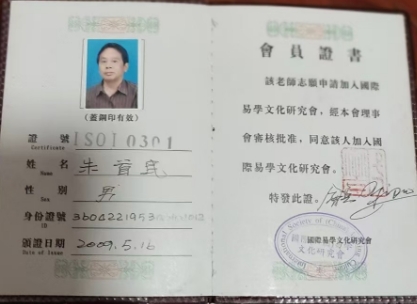 (蓋鋼印有效)
證 號 ISOI0301
Certificate
姓 名 朱
Name
性 别 男
Sex
身份證號 360422195
ID
頒證日期 2009.5.16
Date of Issue
會員證書
該老師志願申請加入國際
易學文化研究會，經本會理事
會審核批准，同意該人加入國
際易學文化研究會。
特發此證。
國際易學文化研究會
文化研究會